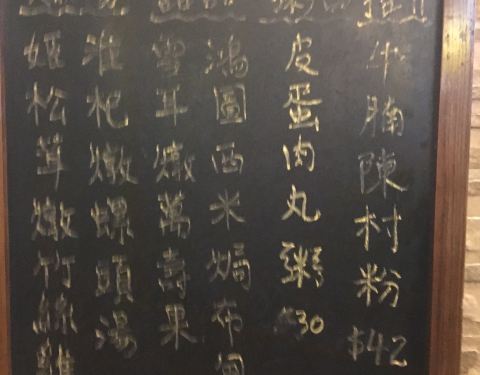 牛腩陳村粉 $42
皮蛋肉丸粥 $30
鴻圖西米焗布甸
雪耳燉萬壽果
淮杞燉螺頭湯
姬松茸燉竹絲雞